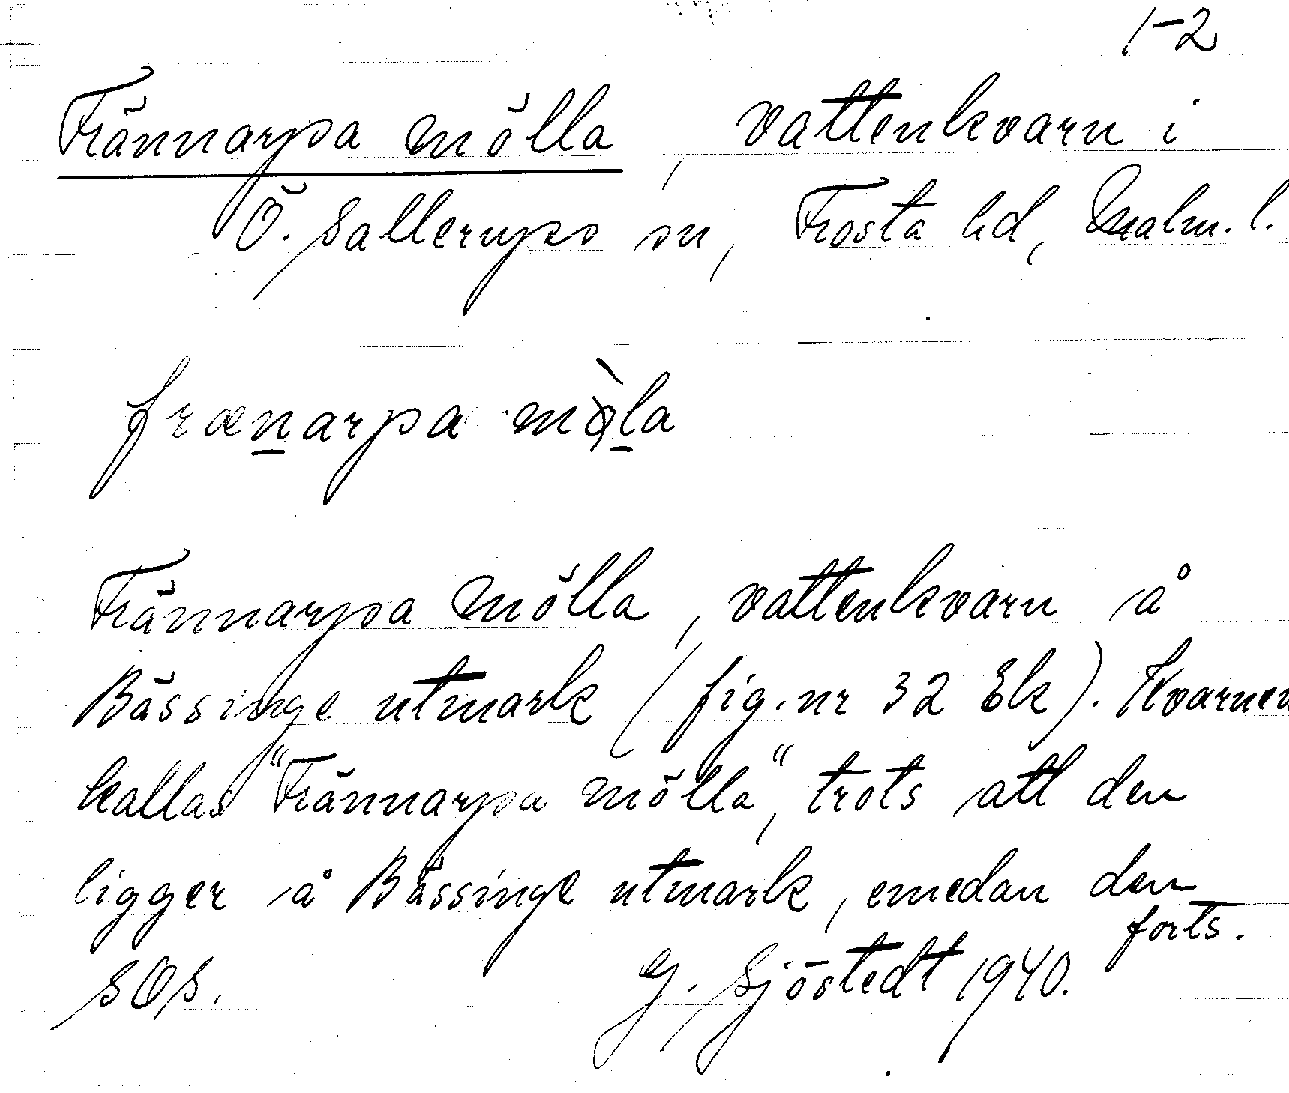 1-2
Frännarpa mölla, vattenkvarn i
Ö. Sallerups sn, Frosta hd, Malm. l.
frænarpa mòla
Frännarpa Mölla, vattenkvarn å
Bässinge utmark (fig. nr 32 Ek). Kvarnen
kallas "Frännarpa mölla", trots att den
ligger å Bässinge utmark, emedan den
forts.
SOS. G. Sjöstedt 1940.